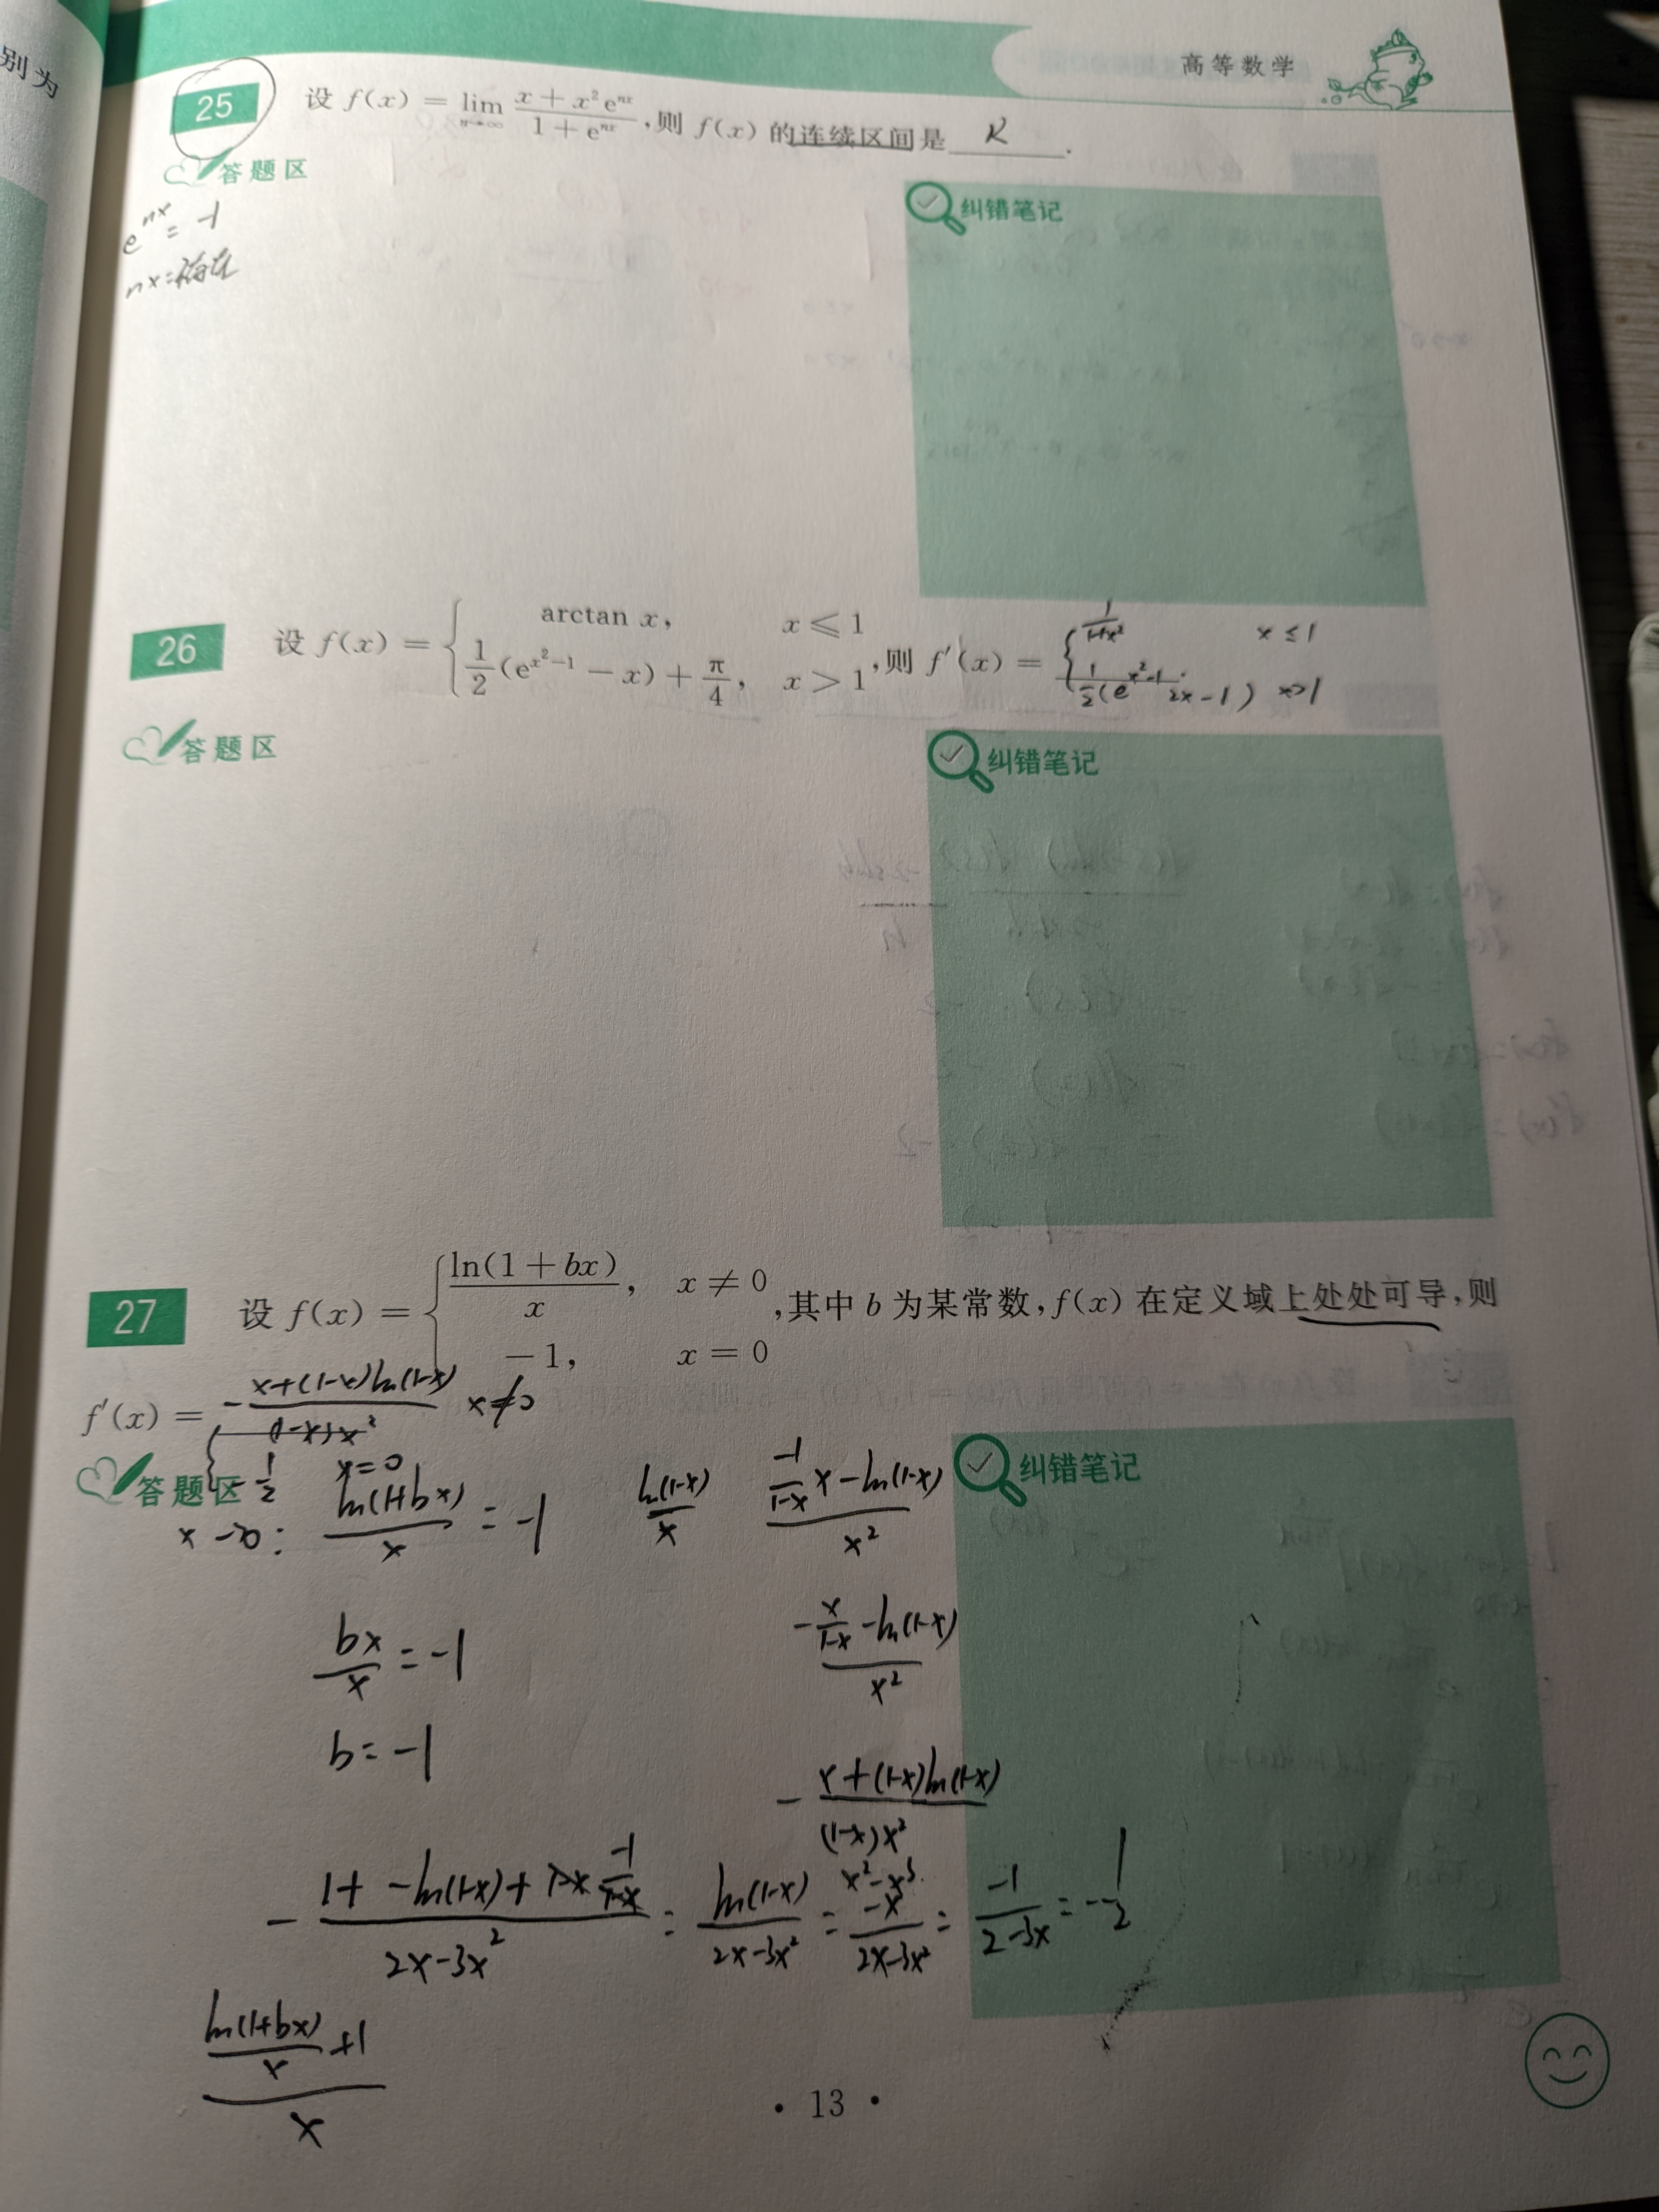 别为
高等数学
25 设 f(x) = lim_{n→∞} (x + x²e^{nx})/(1 + e^{nx}), 则 f(x) 的连续区间是 R .
答题区
纠错笔记
e^{nx} = -1
26 设 f(x) = { arctan x, x ⩽ 1
1/2(e^{x²-1} - x) + π/4, x > 1 , 则 f′(x) = { 1/(1+x²) x ≤ 1
1/2(e^{x²-1}·2x-1) x>1
答题区
纠错笔记
27 设 f(x) = { ln(1+bx)/x, x ≠ 0
-1, x = 0 , 其中 b 为某常数, f(x) 在定义域上处处可导, 则
f′(x) = { - (x+(1-x)ln(1-x))/((1-x)x²) x≠0
-1/2 x=0
答题区
纠错笔记
x→0: ln(1+bx)/x = -1
ln(1-x)/x
(-1/(1-x) x - ln(1-x))/x²
bx/x = -1
(-x/(1-x) - ln(1-x))/x²
b = -1
- (x+(1-x)ln(1-x))/((1-x)x²)
x²-x³
- (1+ -ln(1-x) + 1-x -1/(1-x))/(2x-3x²) = ln(1-x)/(2x-3x²) = -x/(2x-3x²) = -1/(2-3x) = -1/2
(ln(1+bx)/x +1)/x
· 13 ·